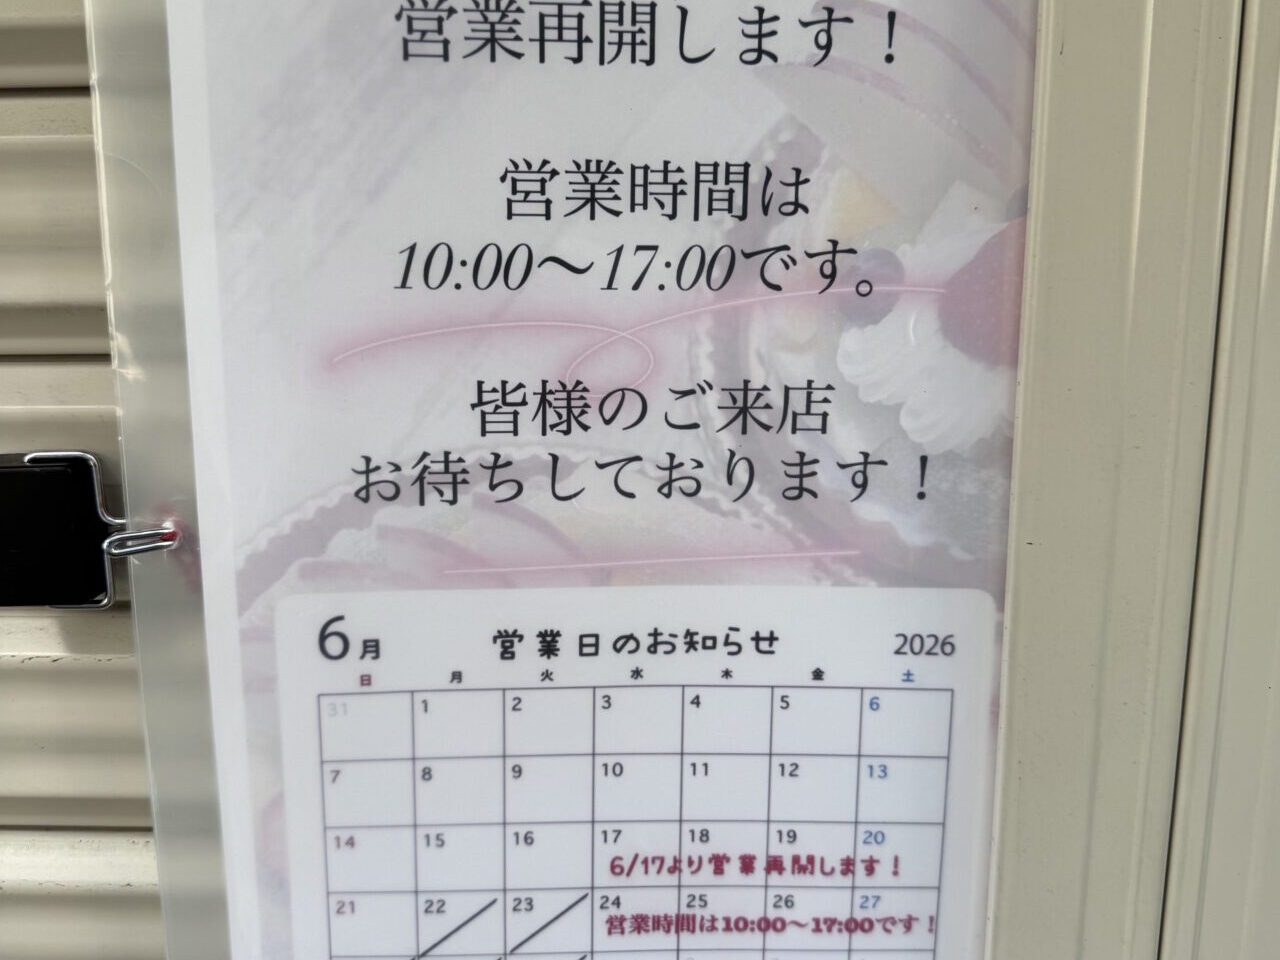 営業再開します！
営業時間は
10:00〜17:00です。
皆様のご来店
お待ちしております！
6月 営業日のお知らせ 2026
日 月 火 水 木 金 土
31 1 2 3 4 5 6
7 8 9 10 11 12 13
14 15 16 17 18 19 20
6/17より営業再開します！
21 22 23 24 25 26 27
営業時間は10:00〜17:00です！